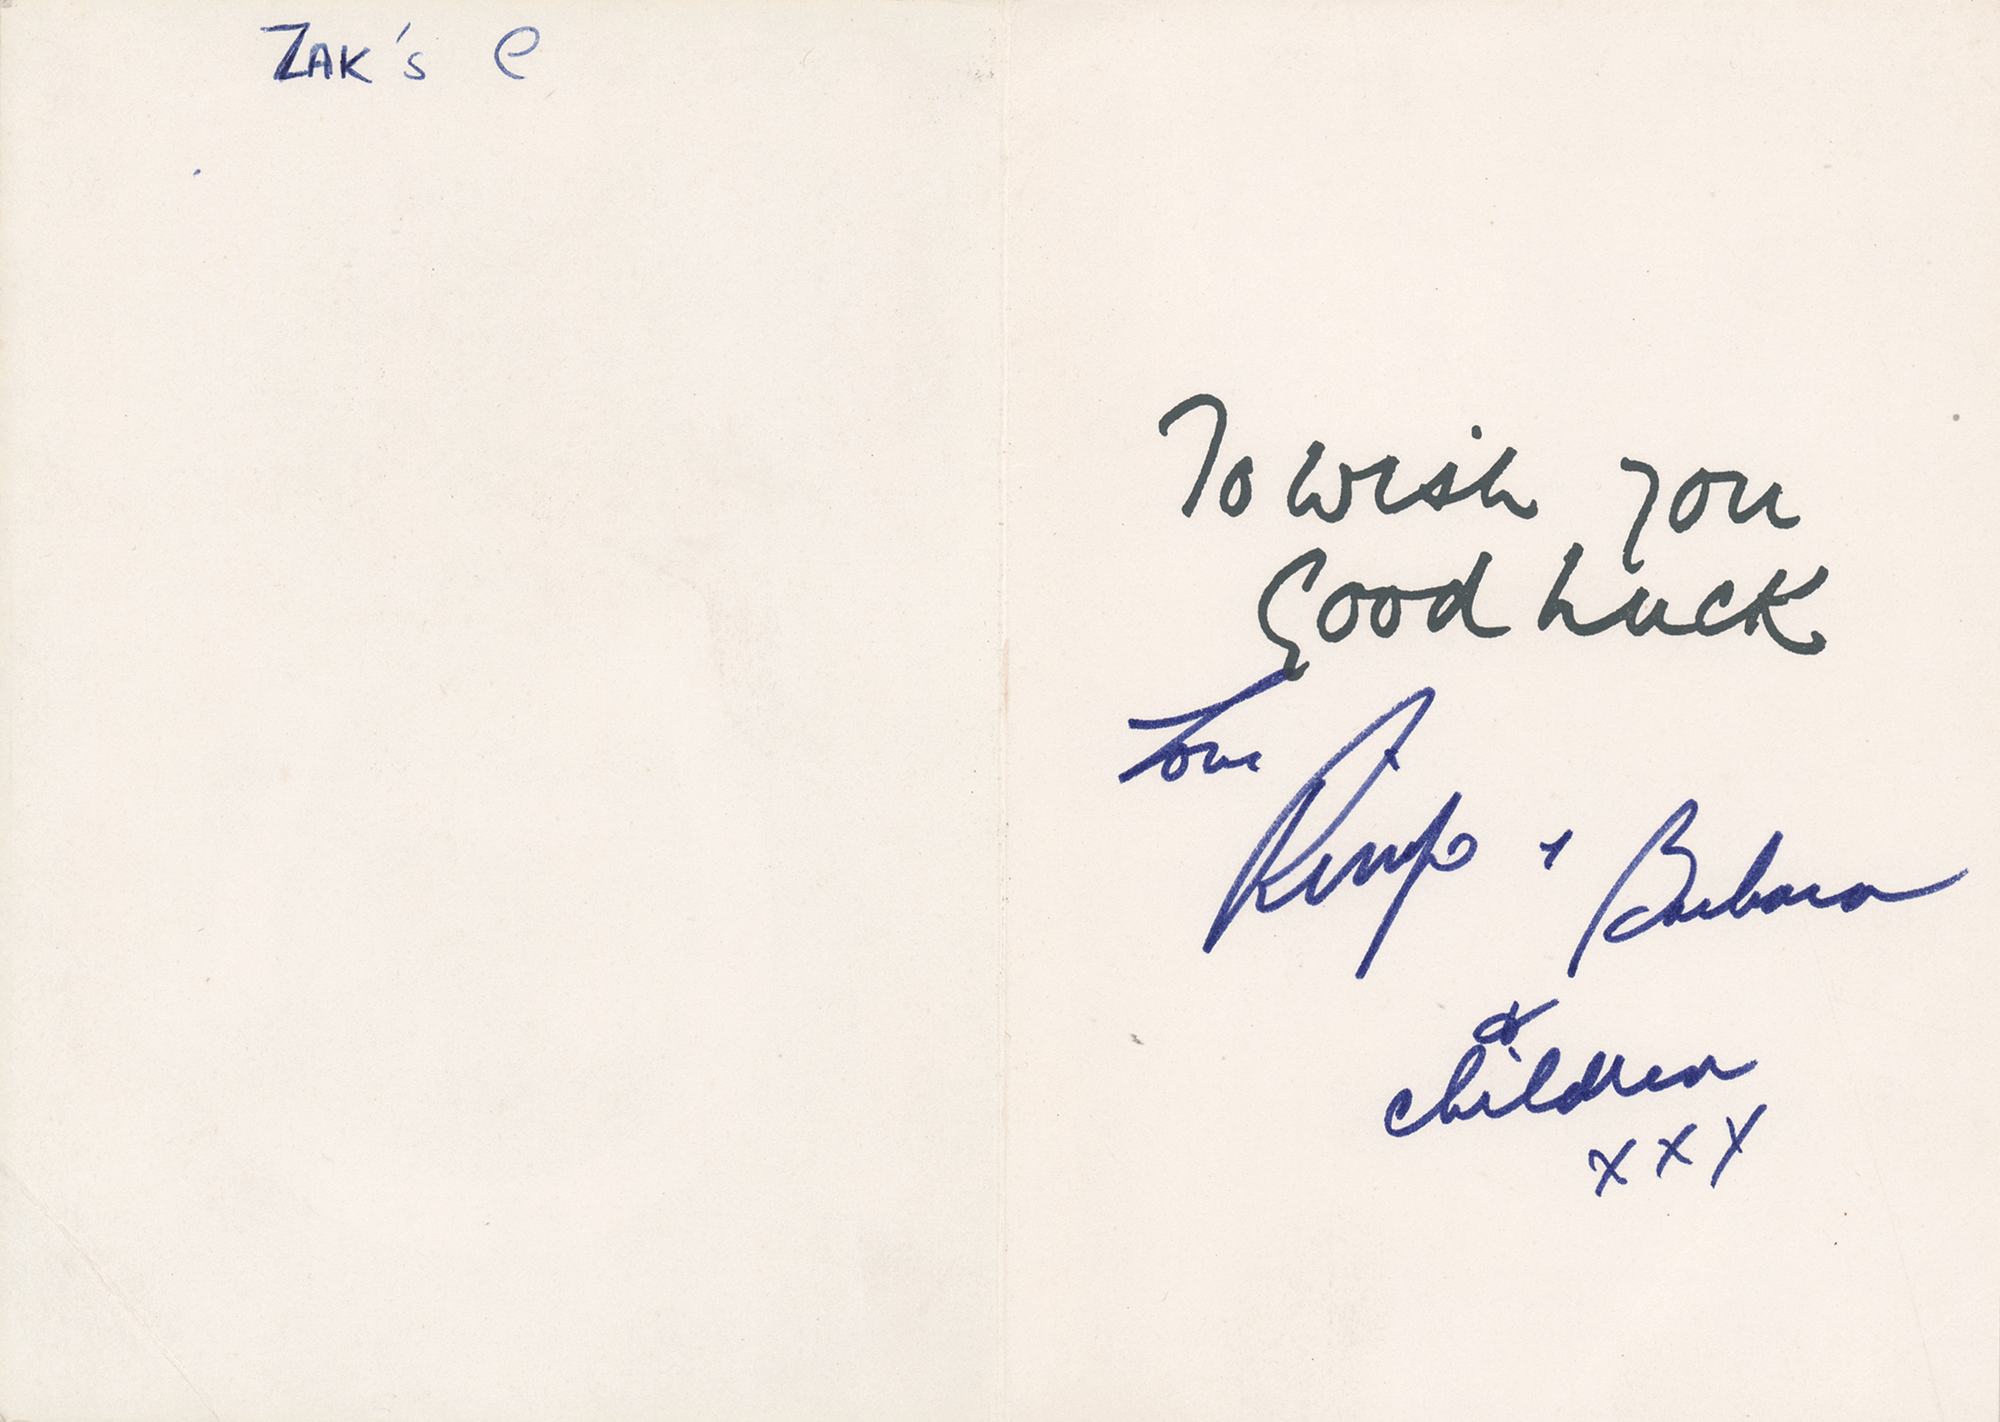 ZAK's e
To Wish you
Good Luck
Love
Ringo + Barbara
&
children
xxx